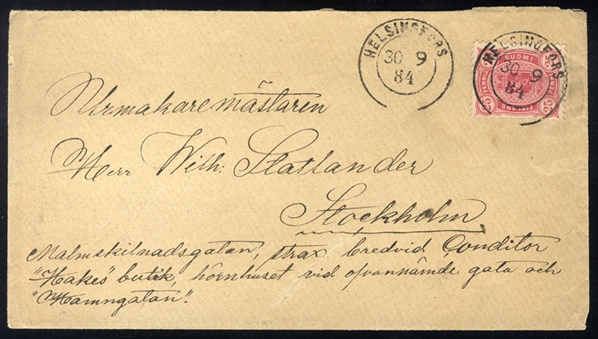 HELSINGFORS
30 9
84
HELSINGFORS
30 9
84
SUOMI
25
25
Urmakaremästaren
Herr Wilh. Statlander
Stockholm
Malmskilnadsgatan, strax bredvid Conditor
"Hakes" butik, hörnhuset vid ofvannämde gata och
"Hamngatan".